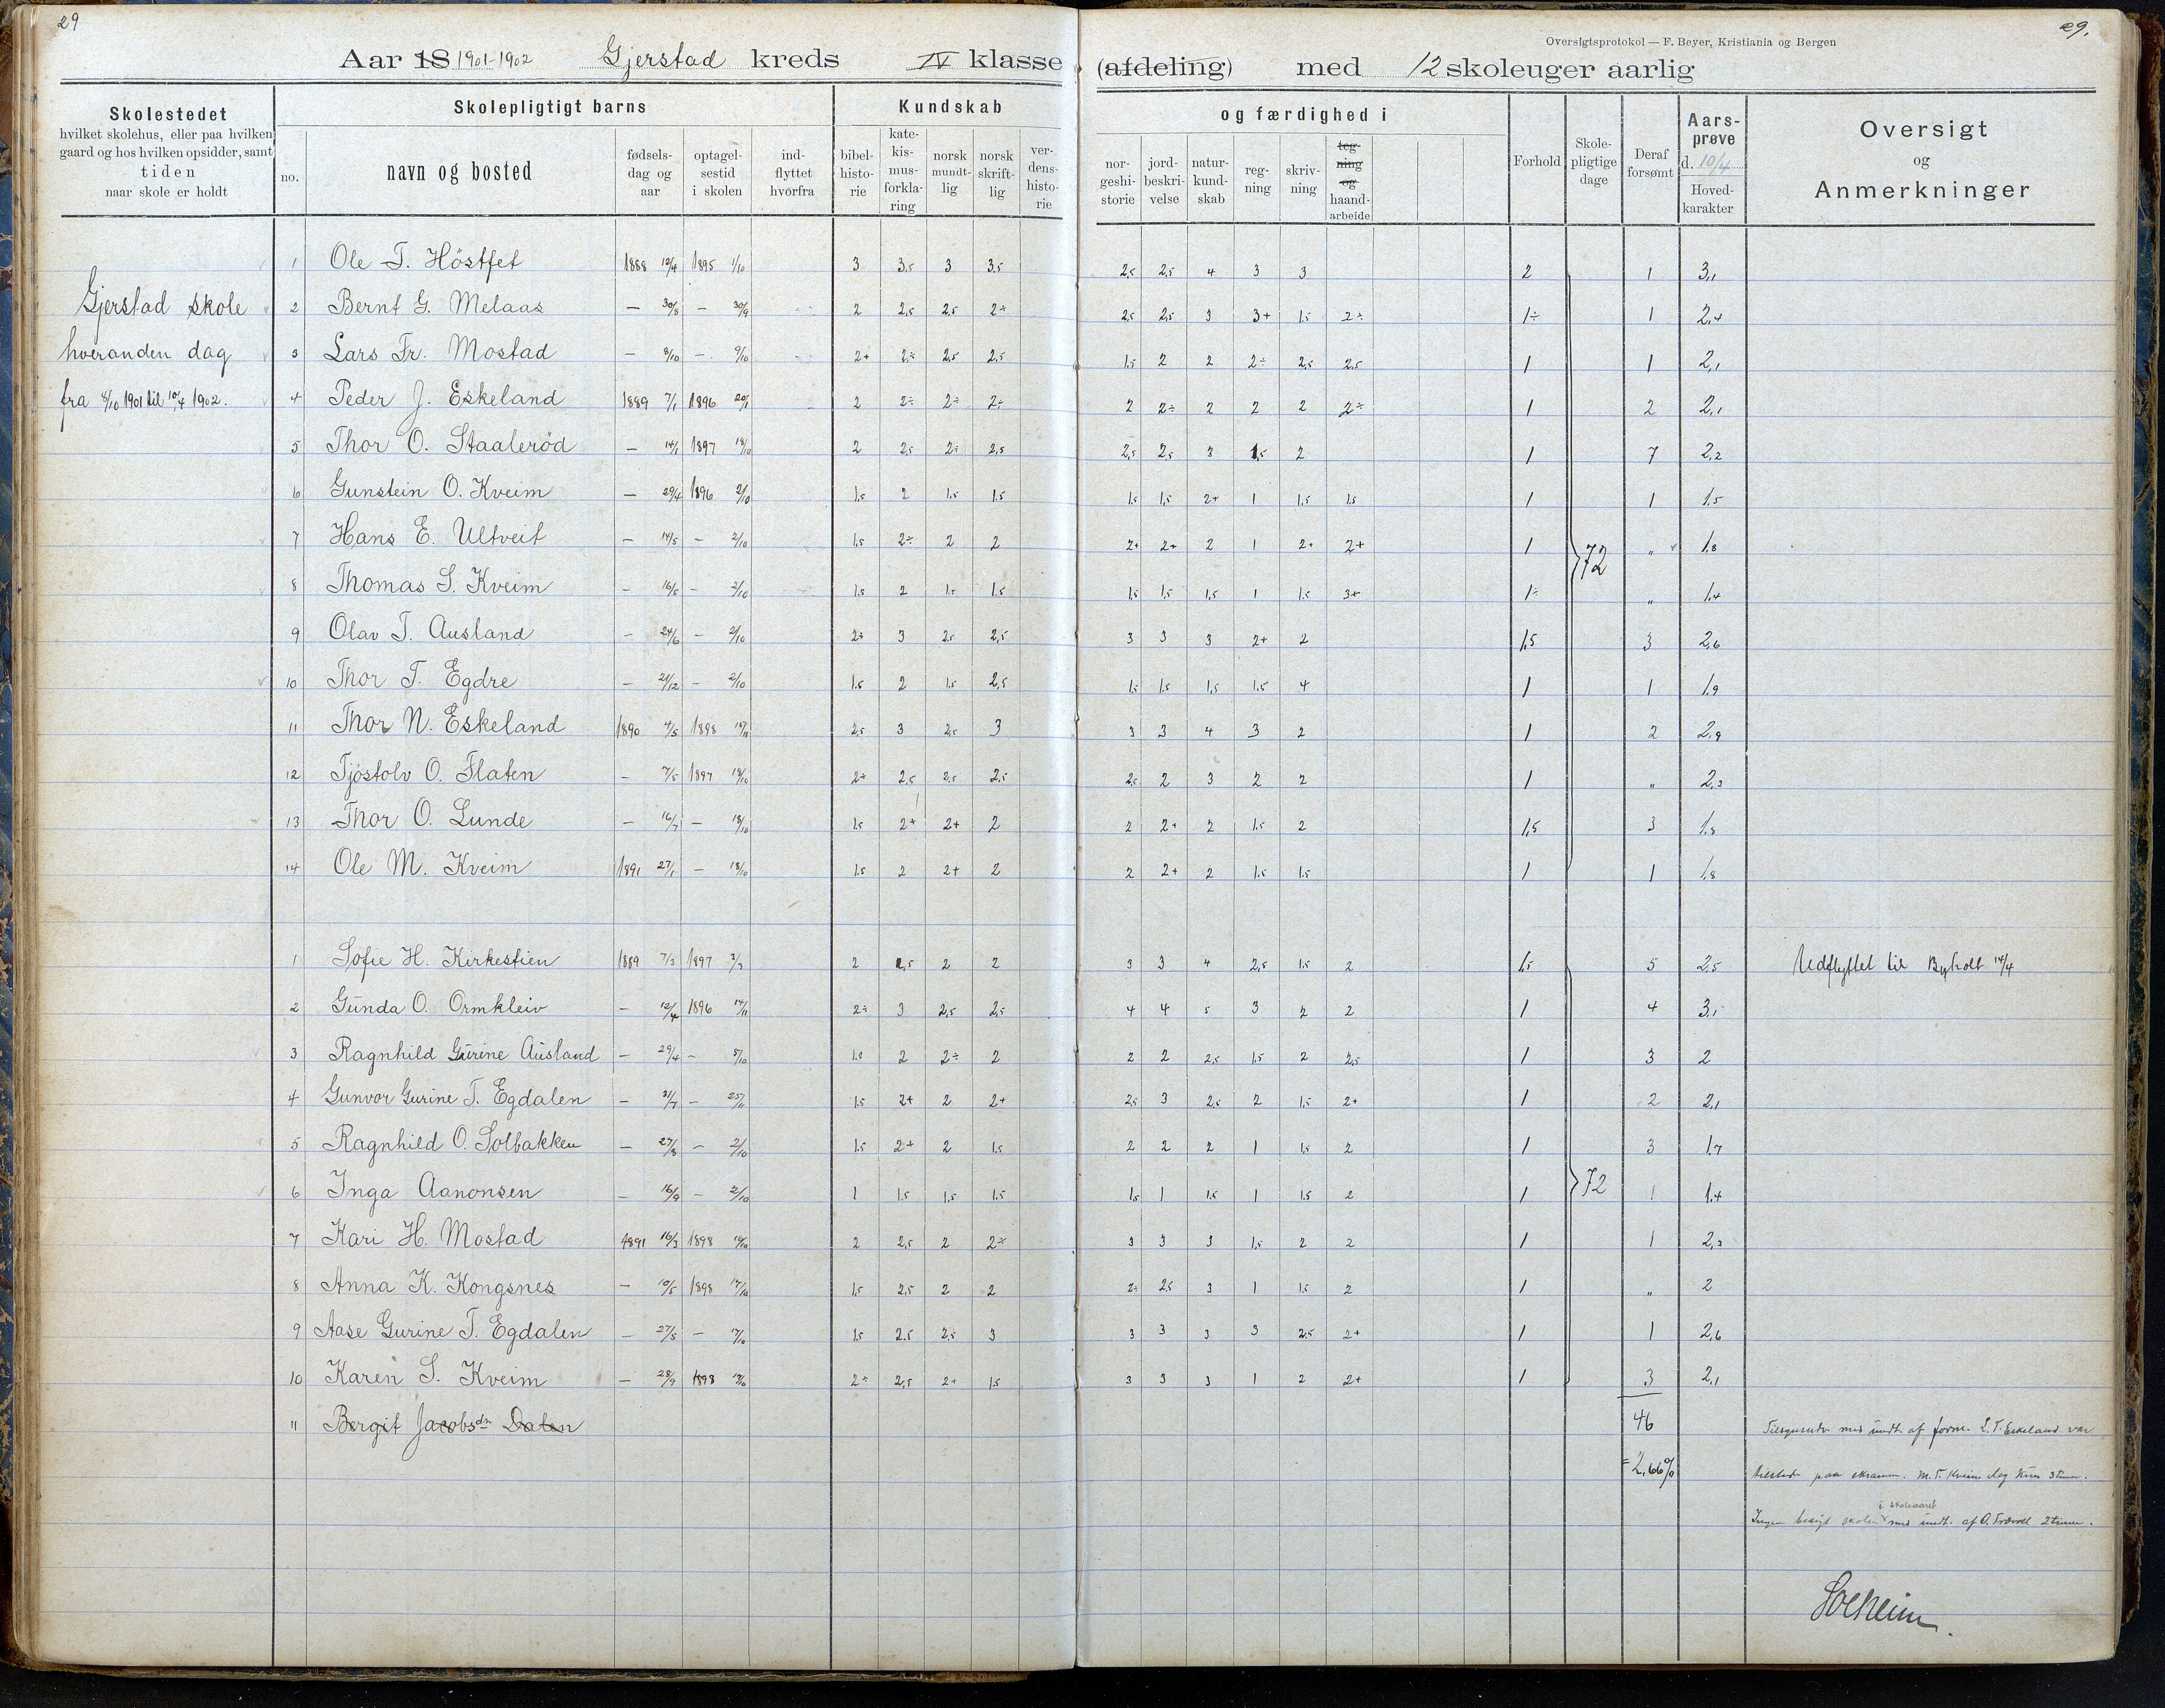 29
29.
Oversigtsprotokol — F. Beyer, Kristiania og Bergen
Aar 18 1901-1902 Gjerstad kreds IV klasse (afdeling) med 12 skoleuger aarlig
Skolestedet
hvilket skolehus, eller paa hvilken
gaard og hos hvilken opsidder, samt
tiden
naar skole er holdt
Skolepligtigt barns
no. navn og bosted
fødsels-dag og aar
optagelsestid i skolen
ind-flyttet hvorfra
Kundskab og færdighed i
bibel-histo-rie
kate-kis-mus-forkla-ring
norsk mundt-lig
norsk skrift-lig
ver-dens-histo-rie
nor-geshi-storie
jord-beskri-velse
natur-kund-skab
reg-ning
skriv-ning
teg-ning og haand-arbeide
Forhold
Skole-pligtige dage
Deraf forsømt
Aars-prøve d. 10/4
Hoved-karakter
Oversigt og Anmerkninger
Gjerstad skole
hveranden dag
fra 8/10 1901 til 10/4 1902.
1 Ole T. Höstfet 1888 10/4 1895 1/10 3 3,5 3 3,5 2,5 2,5 4 3 3 2 1 3,1
2 Bernt G. Melaas — 30/8 — 30/9 2 2,5 2,5 2÷ 2,5 2,5 3 3+ 1,5 2÷ 1÷ 1 2,4
3 Lars Fr. Mostad — 8/10 — 9/10 2+ 2÷ 2,5 2,5 1,5 2 2 2÷ 2,5 2,5 1 1 2,1
4 Peder J. Eskeland 1889 7/1 1896 20/1 2 2÷ 2÷ 2÷ 2 2÷ 2 2 2 2÷ 1 2 2,1
5 Thor O. Staalerød — 14/1 1897 18/10 2 2,5 2÷ 2,5 2,5 2,5 3 1,5 2 1 7 2,2
6 Gunstein O. Kveim — 29/4 1896 2/10 1,5 2 1,5 1,5 1,5 1,5 2+ 1 1,5 1,5 1 1 1,5
7 Hans E. Ultveit — 14/5 — 2/10 1,5 2÷ 2 2 2+ 2+ 2 1 2+ 2+ 1 72 „ 1,8
8 Thomas S. Kveim — 16/5 — 2/10 1,5 2 1,5 1,5 1,5 1,5 1,5 1 1,5 3+ 1÷ „ 1,4
9 Olav T. Ausland — 24/6 — 2/10 2÷ 3 2,5 2,5 3 3 3 2+ 2 1,5 3 2,6
10 Thor T. Egdre — 21/12 — 2/10 1,5 2 1,5 2,5 1,5 1,5 1,5 1,5 4 1 1 1,9
11 Thor N. Eskeland 1890 4/5 1898 15/11 2,5 3 2,5 3 3 3 4 3 2 1 2 2,9
12 Tjöstolv O. Flaten — 7/5 1897 18/10 2+ 2,5 2,5 2,5 2,5 2 3 2 2 1 „ 2,3
13 Thor O. Lunde — 16/7 — 18/10 1,5 2+ 2+ 2 2 2+ 2 1,5 2 1,5 3 1,8
14 Ole M. Kveim 1891 27/1 — 18/10 1,5 2 2+ 2 2 2+ 2 1,5 1,5 1 1 1,8
1 Sofie H. Kirkestien 1889 7/3 1897 3/3 2 2,5 2 2 3 3 4 2,5 1,5 2 1,5 5 2,5 Udflyttet til Byholt 14/4
2 Gunda O. Ormkleiv — 12/4 1896 14/11 2÷ 3 2,5 2,5 4 4 5 3 2 2 1 4 3,1
3 Ragnhild Gurine Ausland — 29/4 — 5/10 1,5 2 2÷ 2 2 2 2,5 1,5 2 2,5 1 3 2
4 Gunvor Gurine T. Egdalen — 31/7 — 25/11 1,5 2+ 2 2+ 2,5 3 2,5 2 1,5 2+ 1 2 2,1
5 Ragnhild O. Solbakken — 27/8 — 2/10 1,5 2+ 2 1,5 2 2 2 1 1,5 2 1 3 1,7
6 Inga Aanonsen — 16/9 — 2/10 1 1,5 1,5 1,5 1,5 1 1,5 1 1,5 2 1 72 1 1,4
7 Kari H. Mostad 1891 16/3 1898 19/10 2 2,5 2 2÷ 3 3 3 1,5 2 2 1 1 2,3
8 Anna K. Kongsnes — 10/5 1898 17/10 1,5 2,5 2 2 2÷ 2,5 3 1 1,5 2 1 „ 2
9 Aase Gurine T. Egdalen — 27/5 — 17/10 1,5 2.5 2,5 3 3 3 3 3 2,5 2+ 1 1 2,6
10 Karen S. Kveim — 28/9 1898 17/10 2+ 2,5 2+ 1,5 3 3 3 1 2 2+ 1 3 2,1
11 Bergit Jacobsdn Dalen 46
= 2,66%
Tilsynsudv. med undt. af form. L. T. Eskeland var
tilstede paa eksamen. M. T. Kveim dog kun 3 timer.
Ingen besøgt skolen i skoleaaret med undt. af O. Trævoll 2 timer.
Solheim.